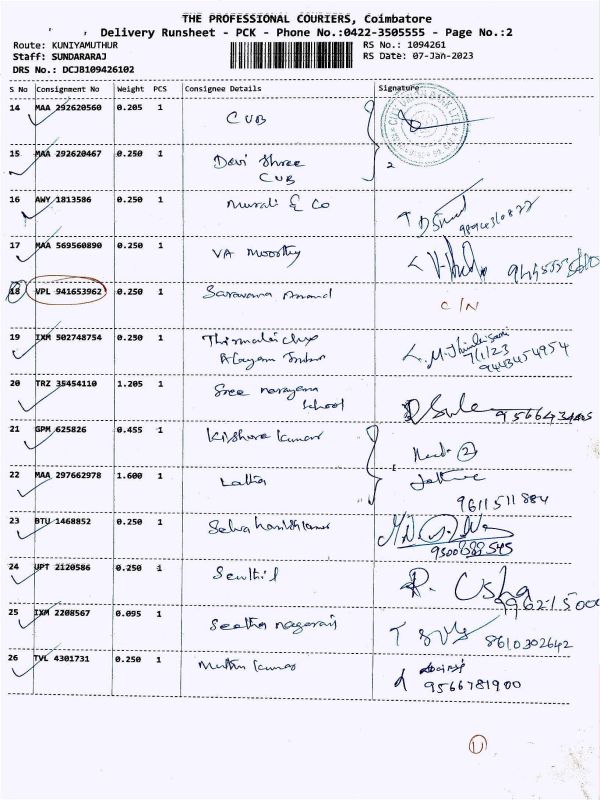 THE PROFESSIONAL COURIERS, Coimbatore
Delivery Runsheet - PCK - Phone No.:0422-3505555 - Page No.:2
Route: KUNIYAMUTHUR RS No.: 1094261
Staff: SUNDARARAJ RS Date: 07-Jan-2023
DRS No.: DCJB109426102
S No Consignment No Weight PCS Consignee Details Signature
14 MAA 292620560 0.205 1 CUB
15 MAA 292620467 0.250 1 Devi Shree 2
CUB
16 AWY 1813586 0.250 1 Murali & Co
17 MAA 569560890 0.250 1 VA Moorthy
18 VPL 941653962 0.250 1 Saravana Anand C/N
19 IXM 502748754 0.250 1
7/1/23
9443454954
20 TRZ 35454110 1.205 1 Sree narayana
School
21 GPM 625826 0.455 1 Kishore Kumar
22 MAA 297662978 1.600 1 Latha
9611511884
23 BTU 1468852 0.250 1
24 UPT 2120586 0.250 1 Senthil P. Usha
25 IXM 2208567 0.095 1 Seetha nagaraj 8610302642
26 TVL 4301731 0.250 1 Muthu Kumar
9566781900